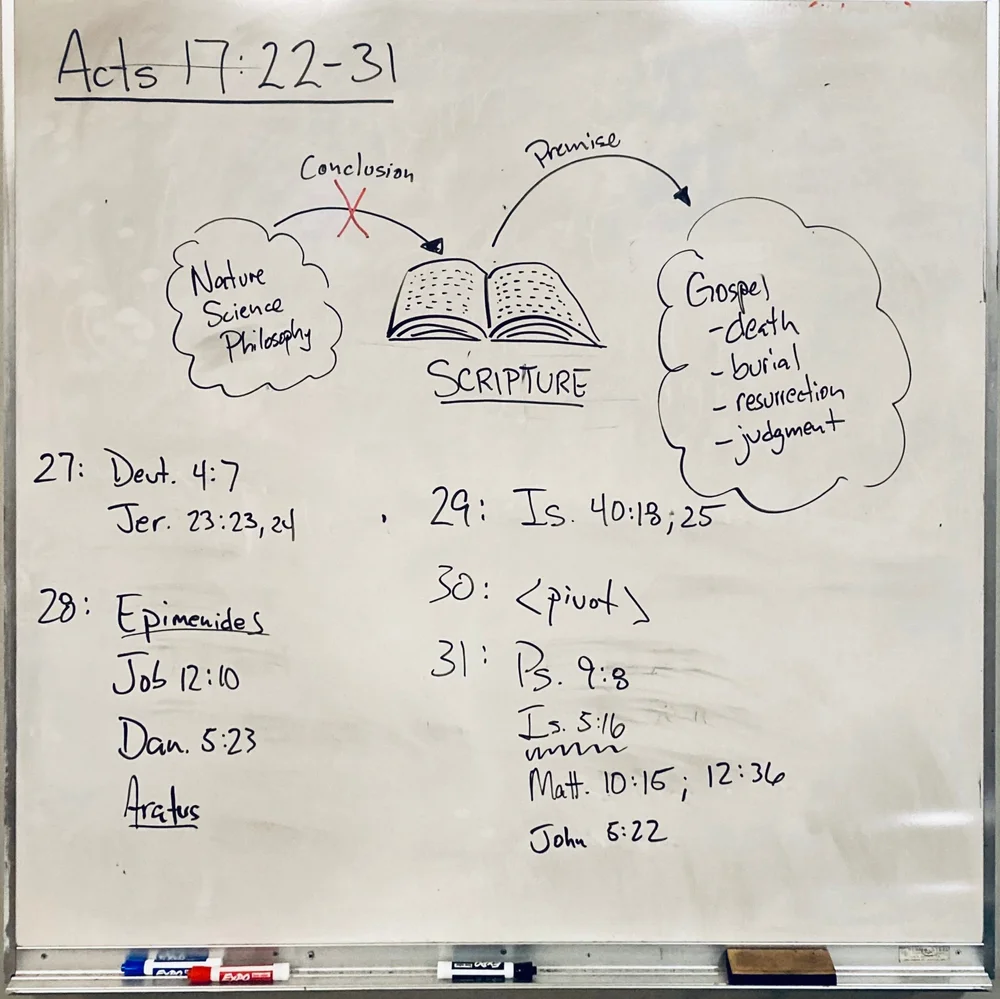 Acts 17:22-31
Conclusion
Premise
Nature
Science
Philosophy
SCRIPTURE
Gospel
- death
- burial
- resurrection
- judgment
27: Deut. 4:7
Jer. 23:23,24
28: Epimenides
Job 12:10
Dan. 5:23
Aratus
29: Is. 40:18;25
30: <pivot>
31: Ps. 9:8
Is. 5:16
Matt. 10:15; 12:36
John 5:22
EXPO
EXPO
EXPO